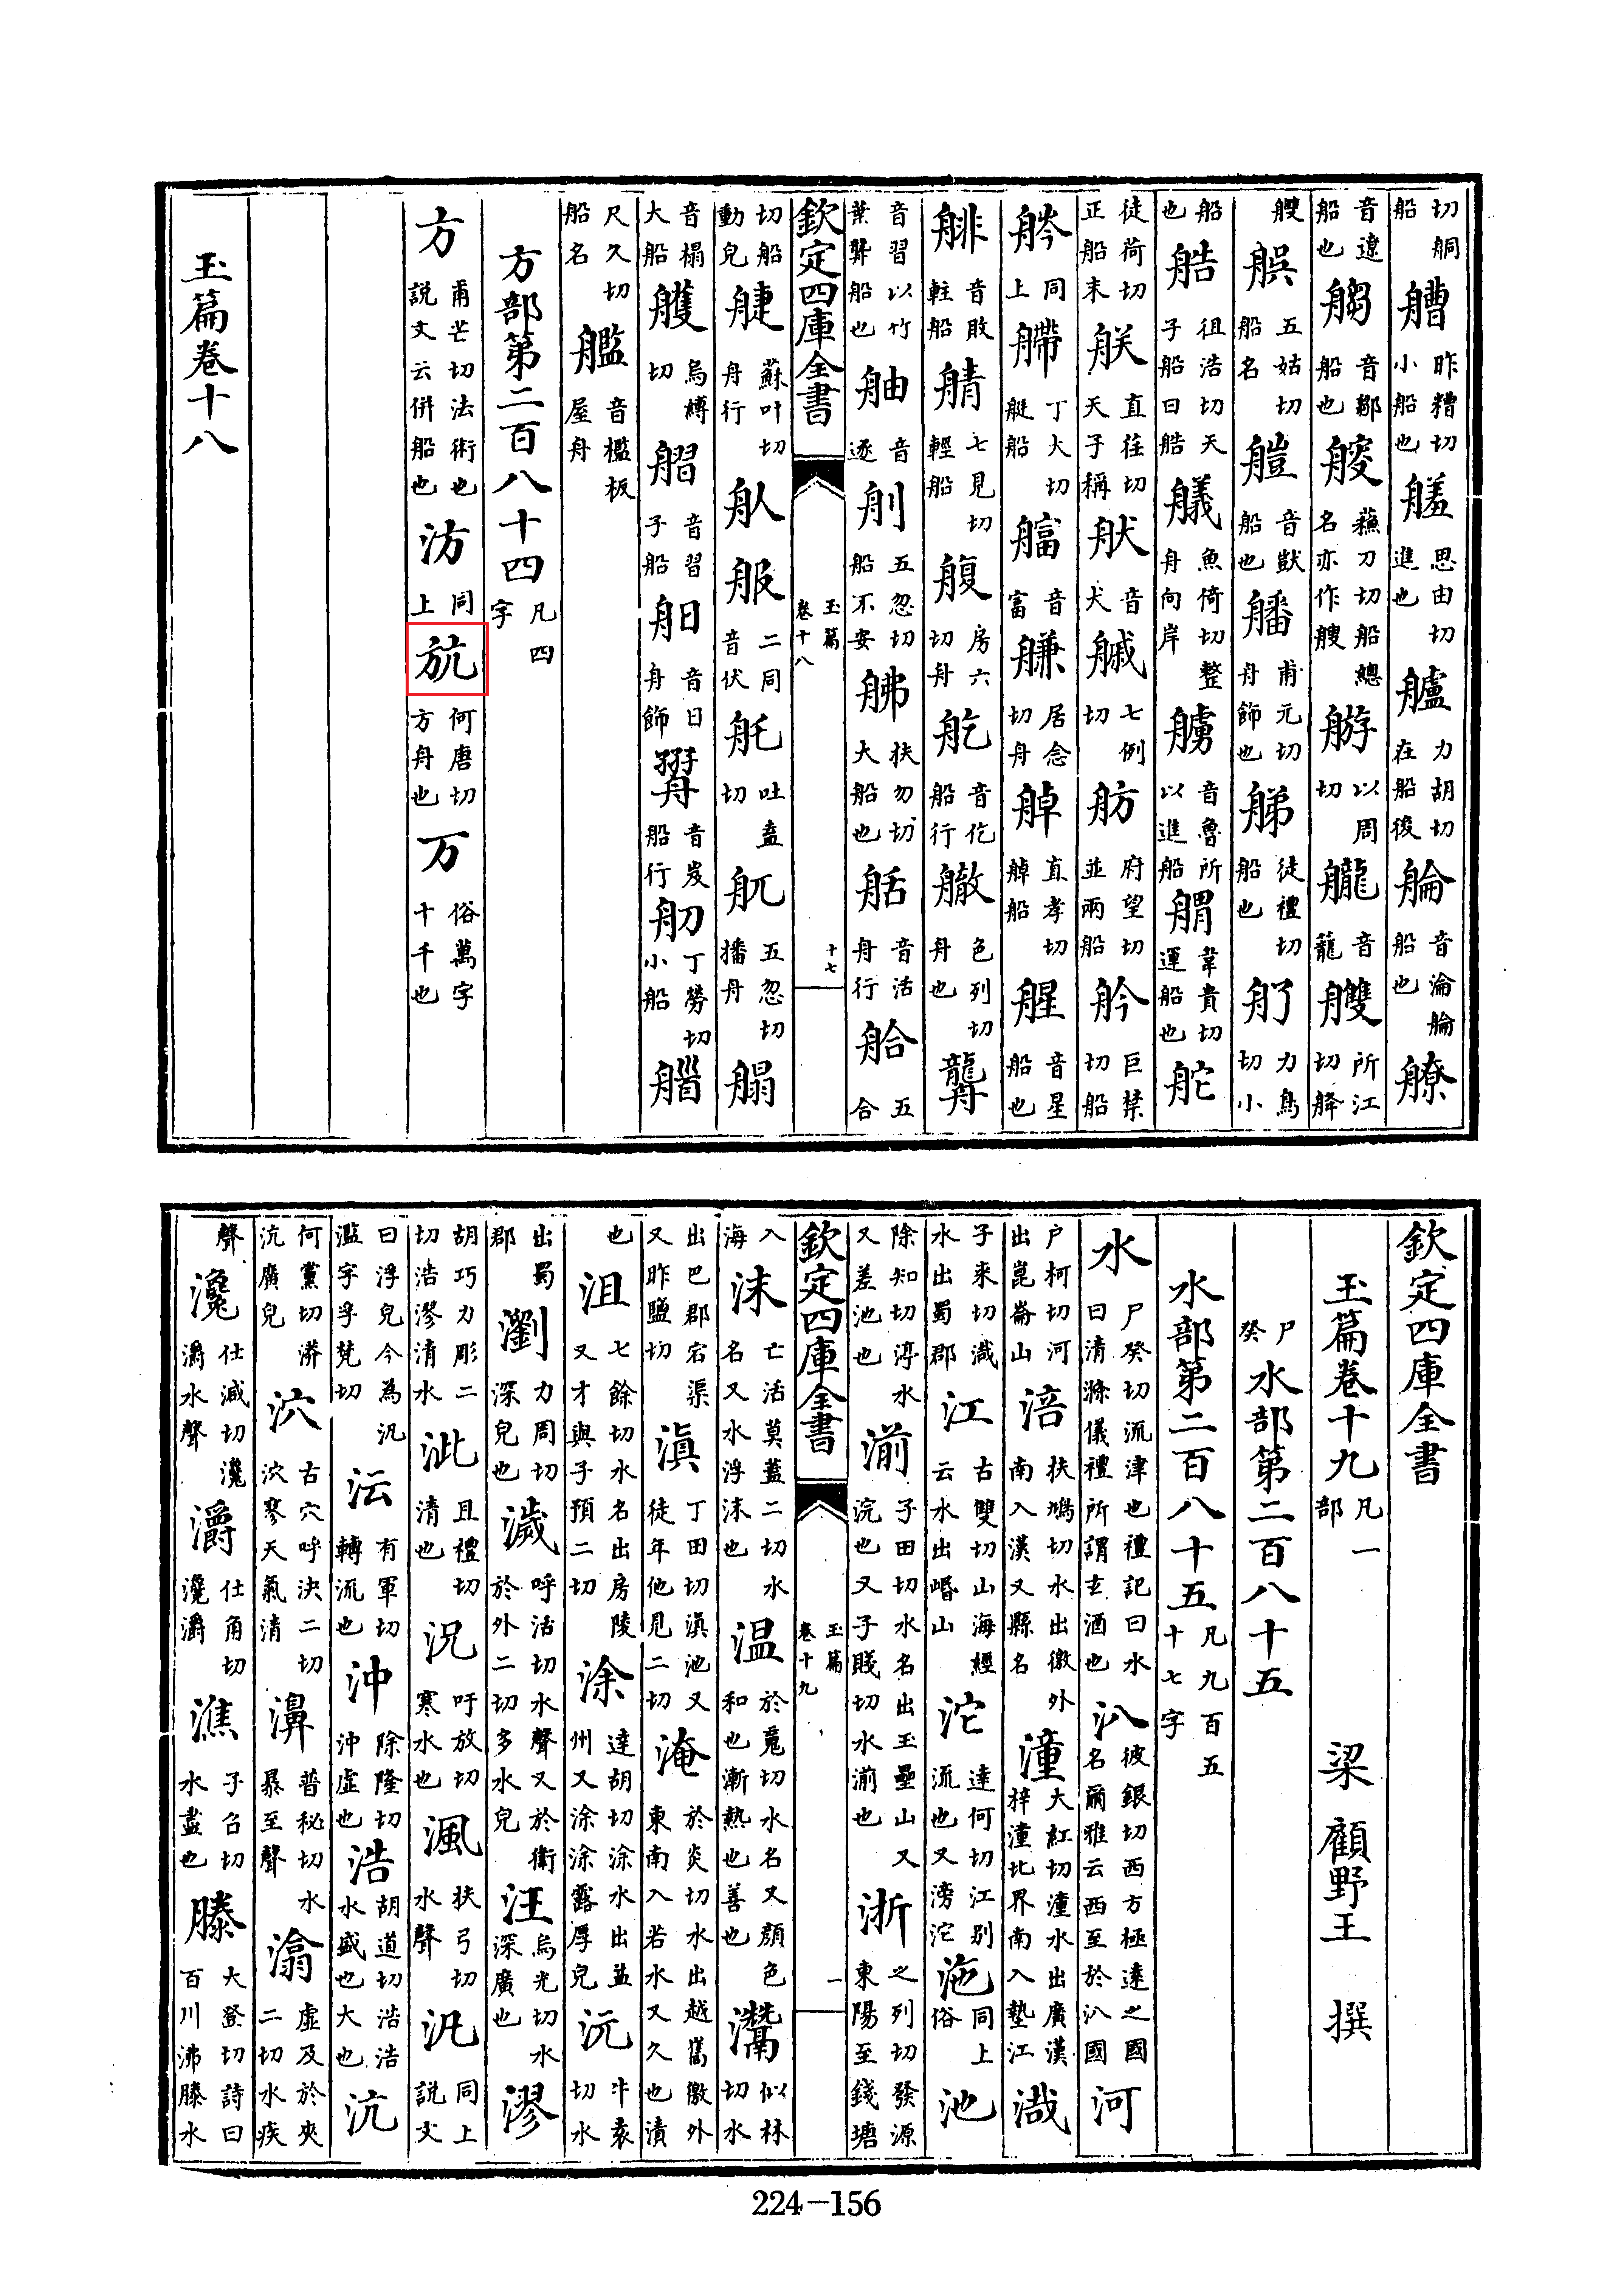 切䑸船䑬昨糟切小船也䑘思由切進也艫力胡切在船後艑音淪艑船也䑠
音遼船也䑳音鄒船也艘蘇刀切船總名亦作艘㳺以周切䑾音龍艭所江切䑫
艘䑨五姑切船名䑓音獃船也䑰甫元切舟飾也䑯徒禮切船也舠力鳥切小
船也艁徂浩切天子船曰艁艤魚倚切整舟向岸艣音魯所以進船䑷韋貴切運船也舵
徒荷切正船末䑣直荏切天子稱䑔音犬䑶七例切舫府望切並兩船䑤巨禁切船
䑥同上䑱丁大切艇船䑧音富艂居念切切舟䑲直孝切䑲船䑴音星船也
音敗䡛船䑶七見切輕船䑧房六切舟䑠音仡船行䑽色列切舟也
音習以竹葉弊船也舳音逐䑔五忽切船不安䑧扶勿切大船也䑩音活舟行䑪五合
欽定四庫全書
玉篇
卷十八
十七
切船動皃䑹蘇叶切舟行舤服二同音伏䑜吐盍切舧五忽切播舟䑽
音榻大船艧烏蠖切䑺音習子船䑕音日舟飾音岌船行舠丁勞切小船
尺久切船名艦音檻板屋舟
方部第二百八十四凡四字
方甫芒切法術也說文云併船也汸同上㫄何唐切方舟也万俗萬字十千也
玉篇卷十八
欽定四庫全書
玉篇卷十九凡一部 梁 顧野王 撰
尸癸水部第二百八十五
水部第二百八十五凡九百五十七字
水尸癸切流津也禮記曰水曰清滌儀禮所謂玄酒也汃彼銀切西方極遠之國名爾雅云西至於汃國河
戶柯切河出崑崙山涪扶鳩切水出徼外南入漢又縣名潼大紅切潼水出廣漢梓潼北界南入墊江涐
子來切涐水出蜀郡江古雙切山海經云水出岷山沱達何切江別流也又滂沱沲同上俗池
除知切渟水又差池也湔子田切水名出玉壘山又浣也又子賤切水湔也浙之列切發源東陽至錢塘
欽定四庫全書
玉篇
卷十九
一
入海沬亡活莫蓋二切水名又水浮沬也温於䰟切水名又顏色和也漸熱也善也灊似林切水
出巴郡宕渠又昨鹽切滇丁田切滇池又徒年他見二切淹於炎切水出越嶲徼外東南入若水又久也漬
也沮七餘切水名出房陵又才與子預二切涂達胡切涂水出益州又涂涂露厚皃沅牛袁切水
出蜀郡瀏力周切深皃也濊呼活切水聲又於衛於外二切多水皃汪烏光切水深廣也漻
胡巧力彫二切浩漻清水泚且禮切清也況吁放切寒水也渢扶弓切水聲汎同上說文
曰浮皃今為汎濫字孚梵切沄有軍切轉流也沖除隆切沖虛也浩胡道切浩浩水盛也大也沆
何黨切漭沆廣皃泬古穴呼決二切泬寥天氣清濞普秘切水暴至聲潝虛及於夾二切水疾
聲瀺仕減切瀺灂水聲灂仕角切瀺灂潐子召切水盡也滕大登切詩曰百川沸滕水
224—156